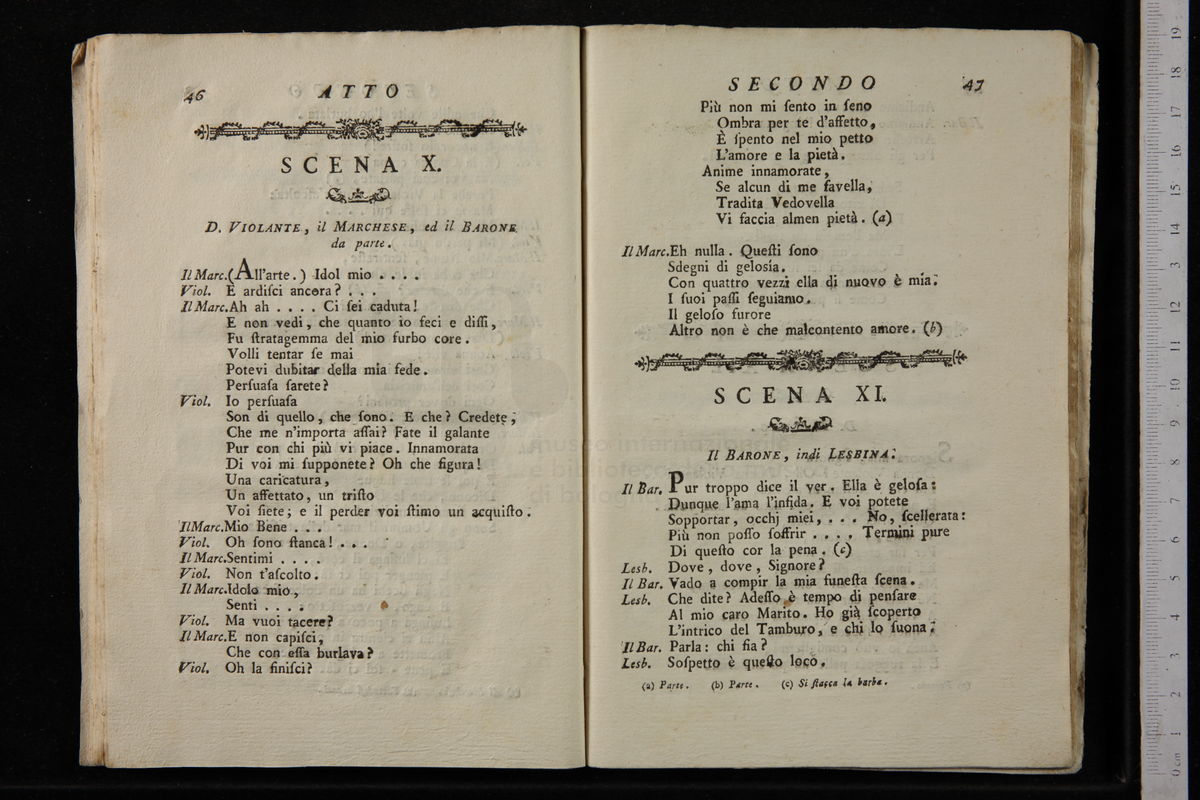 46
ATTO
SCENA X.
D. VIOLANTE, il MARCHESE, ed il BARONE
da parte.
Il Marc.(All'arte.) Idol mio . . . .
Viol. E ardiſci ancora? . . .
Il Marc.Ah ah . . . . Ci ſei caduta!
E non vedi, che quanto io feci e diſſi,
Fu ſtratagemma del mio furbo core.
Volli tentar ſe mai
Potevi dubitar della mia fede.
Perſuaſa ſarete?
Viol. Io perſuaſa
Son di quello, che ſono. E che? Credete,
Che me n'importa aſſai? Fate il galante
Pur con chi più vi piace. Innamorata
Di voi mi ſupponete? Oh che figura!
Una caricatura,
Un affettato, un triſto
Voi ſiete; e il perder voi ſtimo un acquiſto.
Il Marc.Mio Bene . . .
Viol. Oh ſono ſtanca! . . .
Il Marc.Sentimi . . . .
Viol. Non t'aſcolto.
Il Marc.Idolo mio,
Senti . . . .
Viol. Ma vuoi tacere?
Il Marc.E non capiſci,
Che con eſſa burlava?
Viol. Oh la finiſci?
SECONDO
47
Più non mi ſento in ſeno
Ombra per te d'affetto,
È ſpento nel mio petto
L'amore e la pietà.
Anime innamorate,
Se alcun di me favella,
Tradita Vedovella
Vi faccia almen pietà. (a)
Il Marc.Eh nulla. Queſti ſono
Sdegni di geloſía.
Con quattro vezzi ella di nuovo è mia.
I ſuoi paſſi ſeguiamo.
Il geloſo furore
Altro non è che malcontento amore. (b)
SCENA XI.
Il BARONE, indi LESBINA.
Il Bar. Pur troppo dice il ver. Ella è geloſa:
Dunque l'ama l'infida. E voi potete
Sopportar, occhj miei, . . . No, ſcellerata:
Più non poſſo ſoffrir . . . . Termini pure
Di queſto cor la pena. (c)
Lesb. Dove, dove, Signore?
Il Bar. Vado a compir la mia funeſta ſcena.
Lesb. Che dite? Adeſſo è tempo di penſare
Al mio caro Marito. Ho già ſcoperto
L'intrico del Tamburo, e chi lo ſuona.
Il Bar. Parla: chi fia?
Lesb. Soſpetto è queſto loco,
(a) Parte. (b) Parte. (c) Si ſtacca la barba.